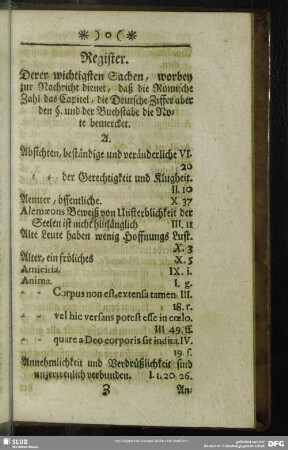 * ) o ( *
Register.
Derer wichtigsten Sachen, worbey
zur Nachricht dienet, daß die Römische
Zahl das Capitel, die Deutsche Ziffer aber
den §. und der Buchstabe die No-
te bemercket.
A.
Absichten, beständige und veränderliche VI.
20
- - der Gerechtigkeit und Klugheit.
II. 10
Aemter, öffentliche. X. 37
Alemæons Beweiß von Unsterblichkeit der
Seelen ist nicht hinlänglich III. 11
Alte Leute haben wenig Hoffnungs Lust.
X. 3
Alter, ein fröhliches X. 5.
Amicitia. IX. i.
Anima. I. g.
- - Corpus non est, extensa tamen. III.
18. r.
- - vel hic versans potest esse in cœlo.
III 49. ff.
- - quare a Deo corporis sit indita. IV.
19. f.
Annehmlichkeit und Verdrüßlichkeit sind
unzertrenlich verbunden. I. 1. 20. 26.
Z An-
SLUB
DFG